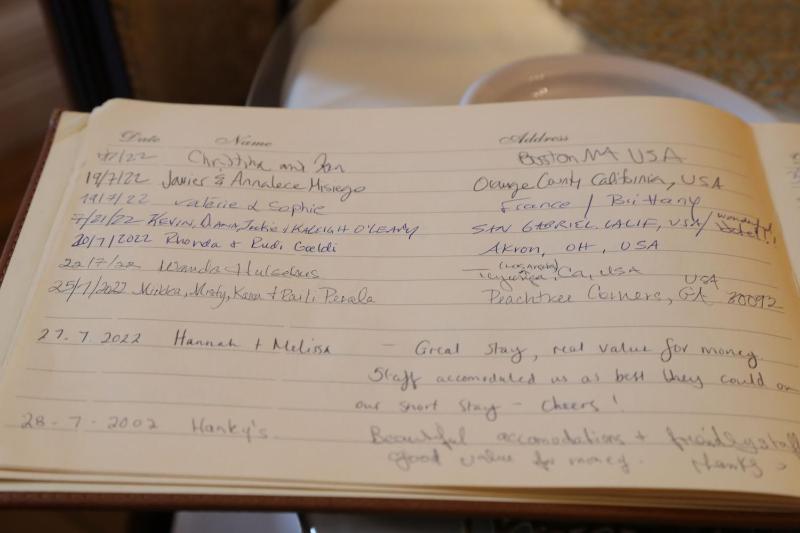 Date Name Address
/7/22 Christina and Jan Boston MA USA
19/7/22 Javier & Annalece Misiego Orange County California, USA
19/7/22 Valérie & Sophie France / Brittany
7/21/22 KEVIN, DIANA, Jackie & KALEIGH O'LEARY SAN GABRIEL. CALIF, USA / wonderful Hotel!!
20/7/2022 Rhonda & Rudi Akron, OH, USA
22/7/22 Wanda (Los Angeles), Ca, USA
25/7/2022 Miikka, Misty, Karen & Rauli Perala Peachtree Corners, GA 30092 USA
27.7.2022 Hannah + Melissa - Great stay, real value for money.
Staff accomodated us as best they could on
our short stay - Cheers!
28-7-2002 Hanky's. Beautiful accomodations + friendly staff
good value for money. thanks